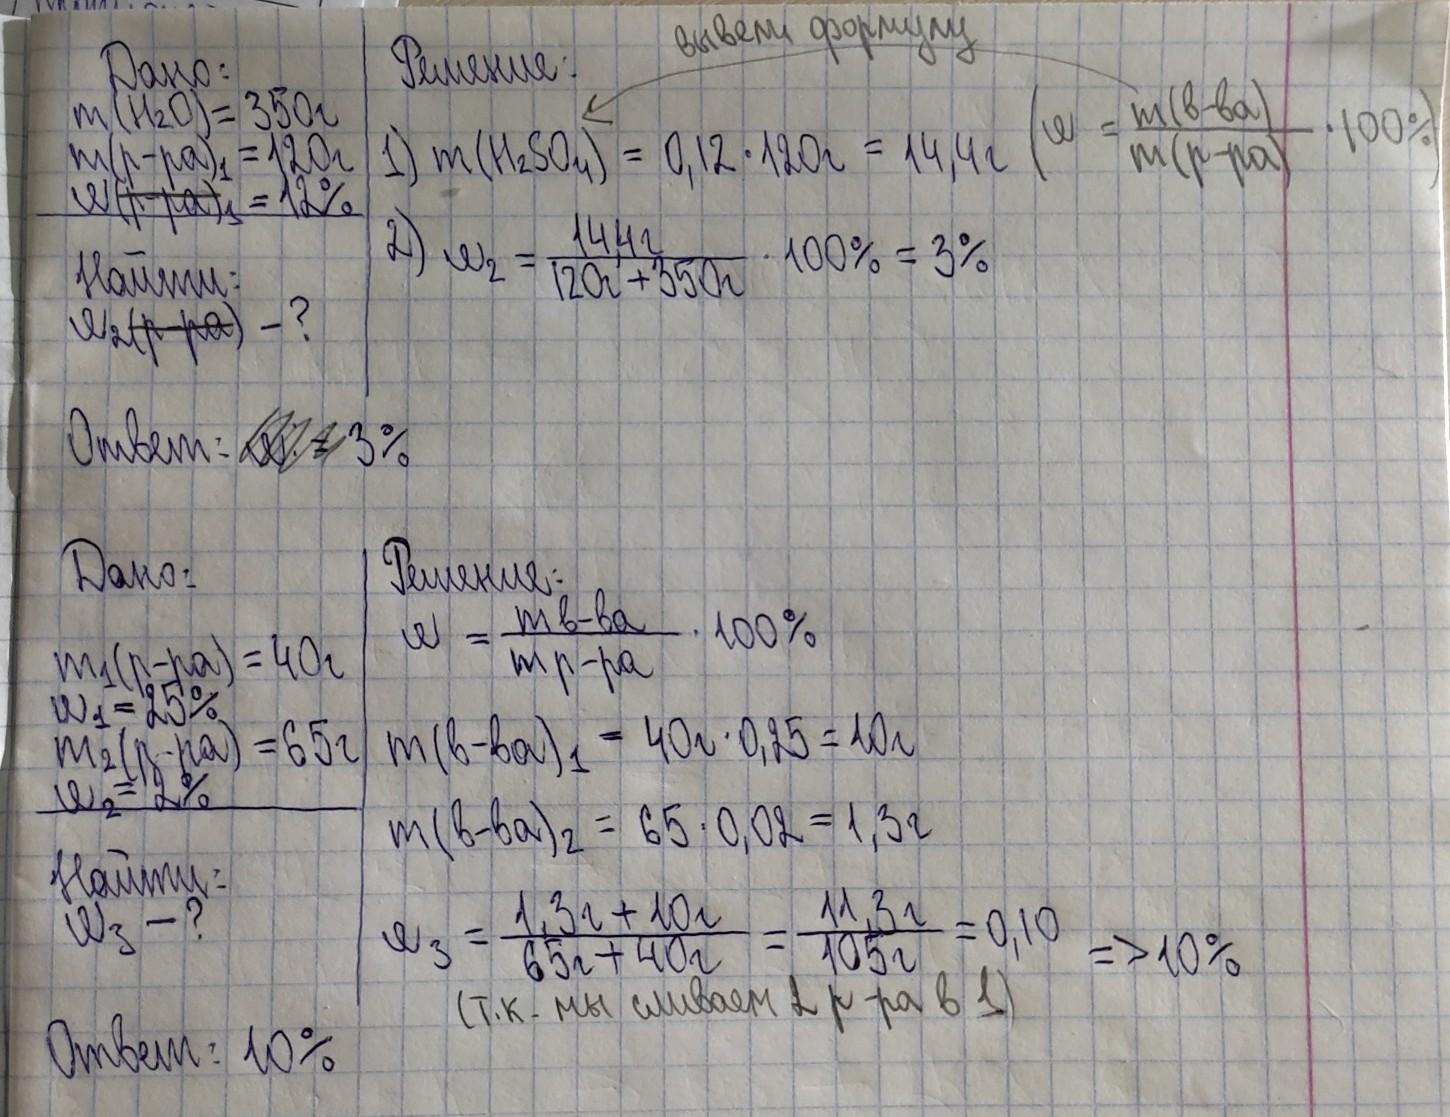 вывели формулу
Дано:
m(H₂O) = 350г
m(р-ра)₁ = 120г
w(р-ра)₁ = 12%
Найти:
w₂(р-ра) – ?
Решение:
1) m(H₂SO₄) = 0,12 · 120г = 14,4г (w = m(в-ва) / m(р-ра) · 100%)
2) w₂ = 14,4г / 120г + 350г · 100% = 3%
Ответ: 3%
Дано:
m₁(р-ра) = 40г
w₁ = 25%
m₂(р-ра) = 65г
w₂ = 2%
Найти:
w₃ – ?
Решение:
w = mв-ва / mр-ра · 100%
m(в-ва)₁ = 40г · 0,25 = 10г
m(в-ва)₂ = 65 · 0,02 = 1,3г
w₃ = 1,3г + 10г / 65г + 40г = 11,3г / 105г = 0,10 => 10%
(т.к. мы сливаем 2 р-ра в 1)
Ответ: 10%